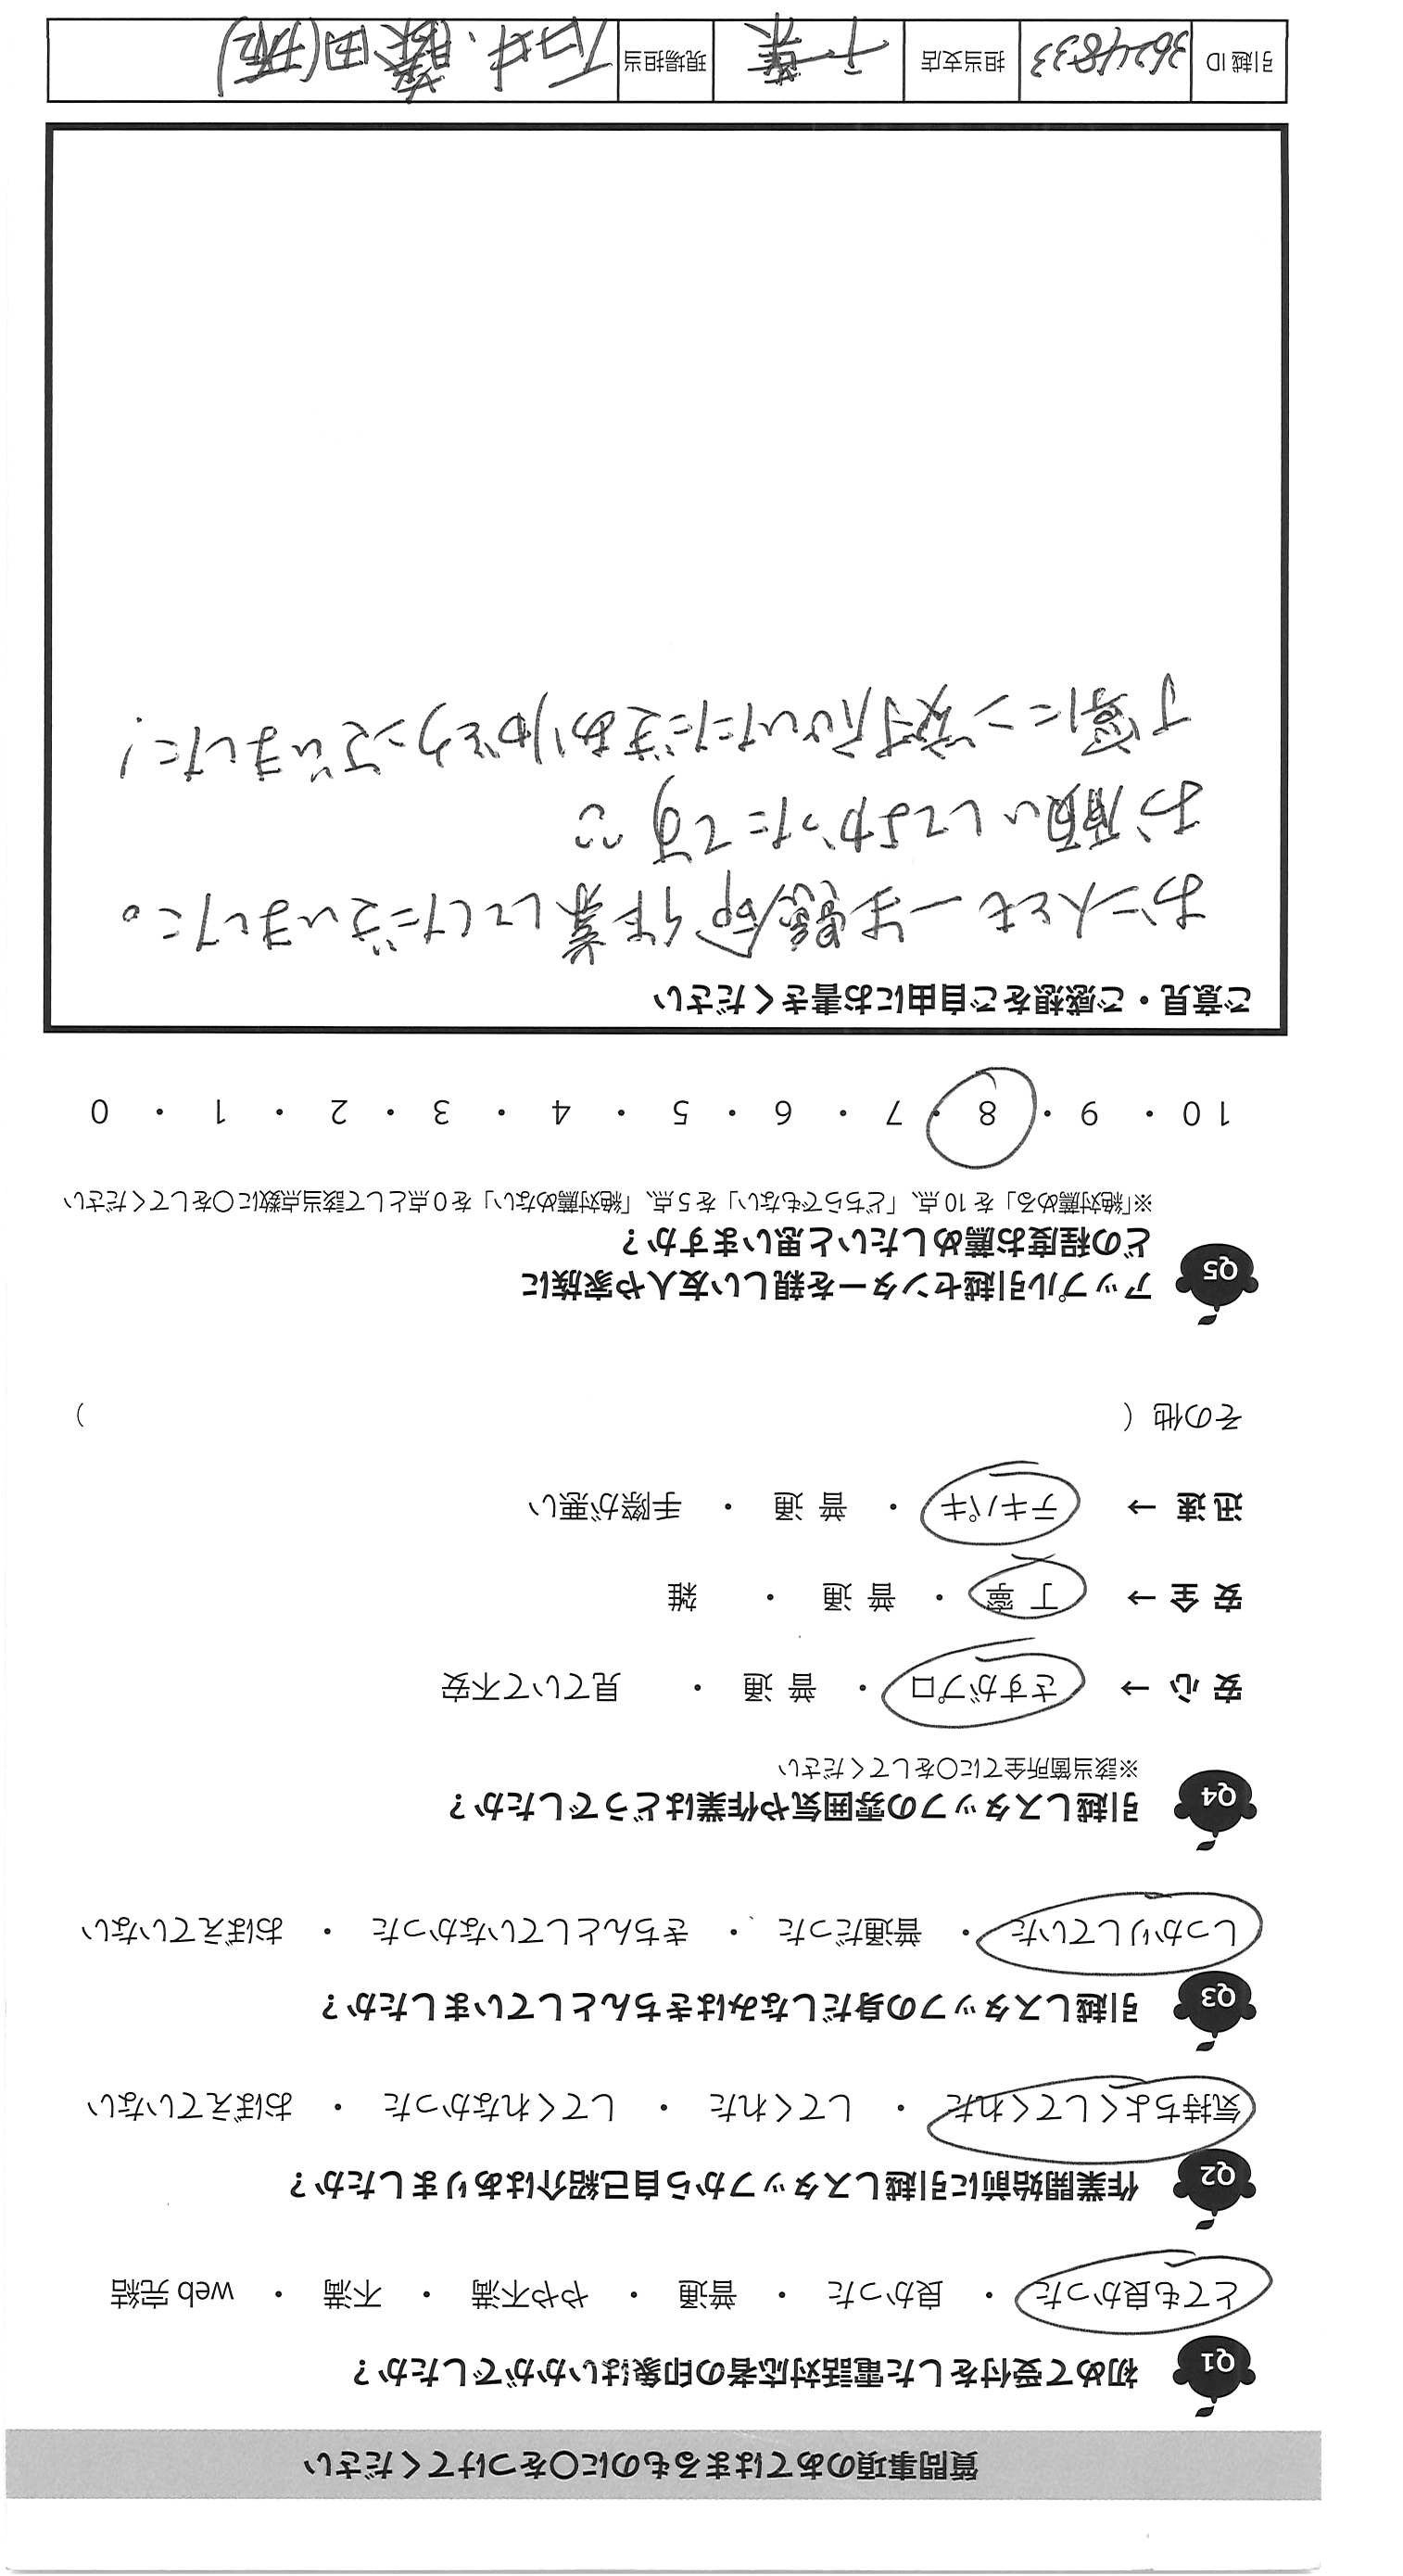 質問事項のあてはまるものに○をつけてください
Q1 初めて受付をした電話対応者の印象はいかがでしたか？
とても良かった ・ 良かった ・ 普通 ・ やや不満 ・ 不満 ・ web 完結
Q2 作業開始前に引越しスタッフから自己紹介はありましたか？
気持ちよくしてくれた ・ してくれた ・ してくれなかった ・ おぼえていない
Q3 引越しスタッフの身だしなみはきちんとしていましたか？
しっかりしていた ・ 普通だった ・ きちんとしていなかった ・ おぼえていない
Q4 引越しスタッフの雰囲気や作業はどうでしたか？
※該当箇所全てに○をしてください
安 心 → さすがプロ ・ 普 通 ・ 見ていて不安
安 全 → 丁 寧 ・ 普 通 ・ 雑
迅 速 → テキパキ ・ 普 通 ・ 手際が悪い
その他（ ）
Q5 アップル引越センターを親しい友人や家族に
どの程度お薦めしたいと思いますか？
※「絶対薦める」を 10 点、「どちらでもない」を 5 点、「絶対薦めない」を 0 点として該当点数に○をしてください
10 ・ 9 ・ 8 ・ 7 ・ 6 ・ 5 ・ 4 ・ 3 ・ 2 ・ 1 ・ 0
ご意見・ご感想をご自由にお書きください
お二人とも一生懸命作業してくださいました。
お願いしてよかったです
丁寧にご案内いただきありがとうございました！
引越 ID 3624833 担当支店 千葉 現場担当 石井、藤田(班)